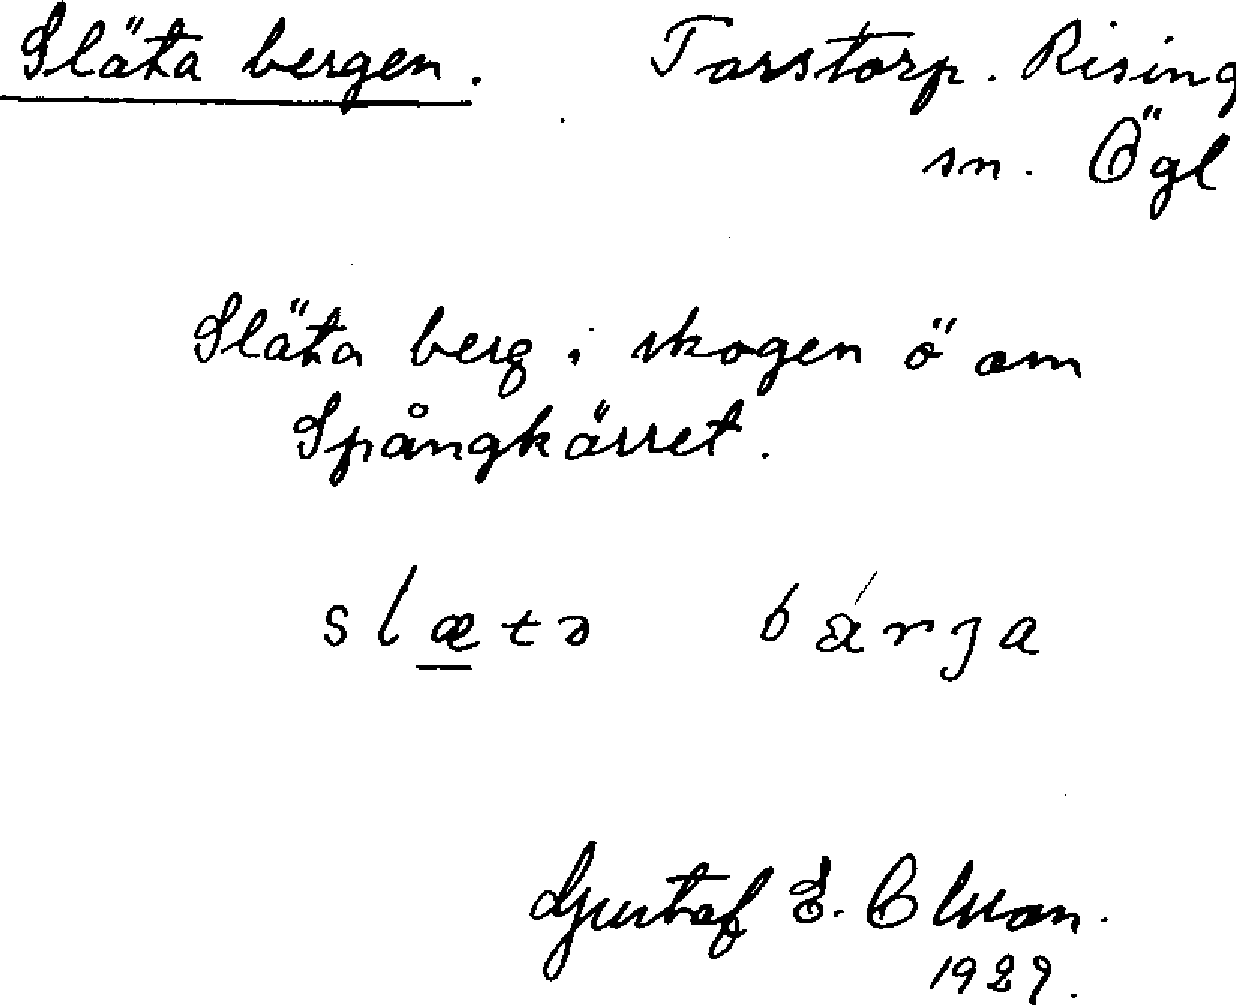 Släta bergen. Torstorp. Rising
sn. Ögl
Släta berg i skogen ö om
Spångkärret.
slætə bárja
Gustaf E. Olson.
1929.